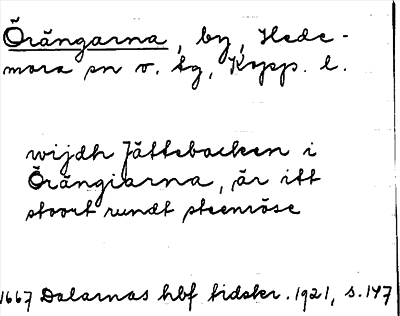 Örängarna, by, Hede-
mora sn o. tg, Kopp. l.
wijdh Jättebacken i
Örängiarna, är itt
stoort rundt steenröse
1667 Dalarnas hbf tidskr. 1921, s. 147